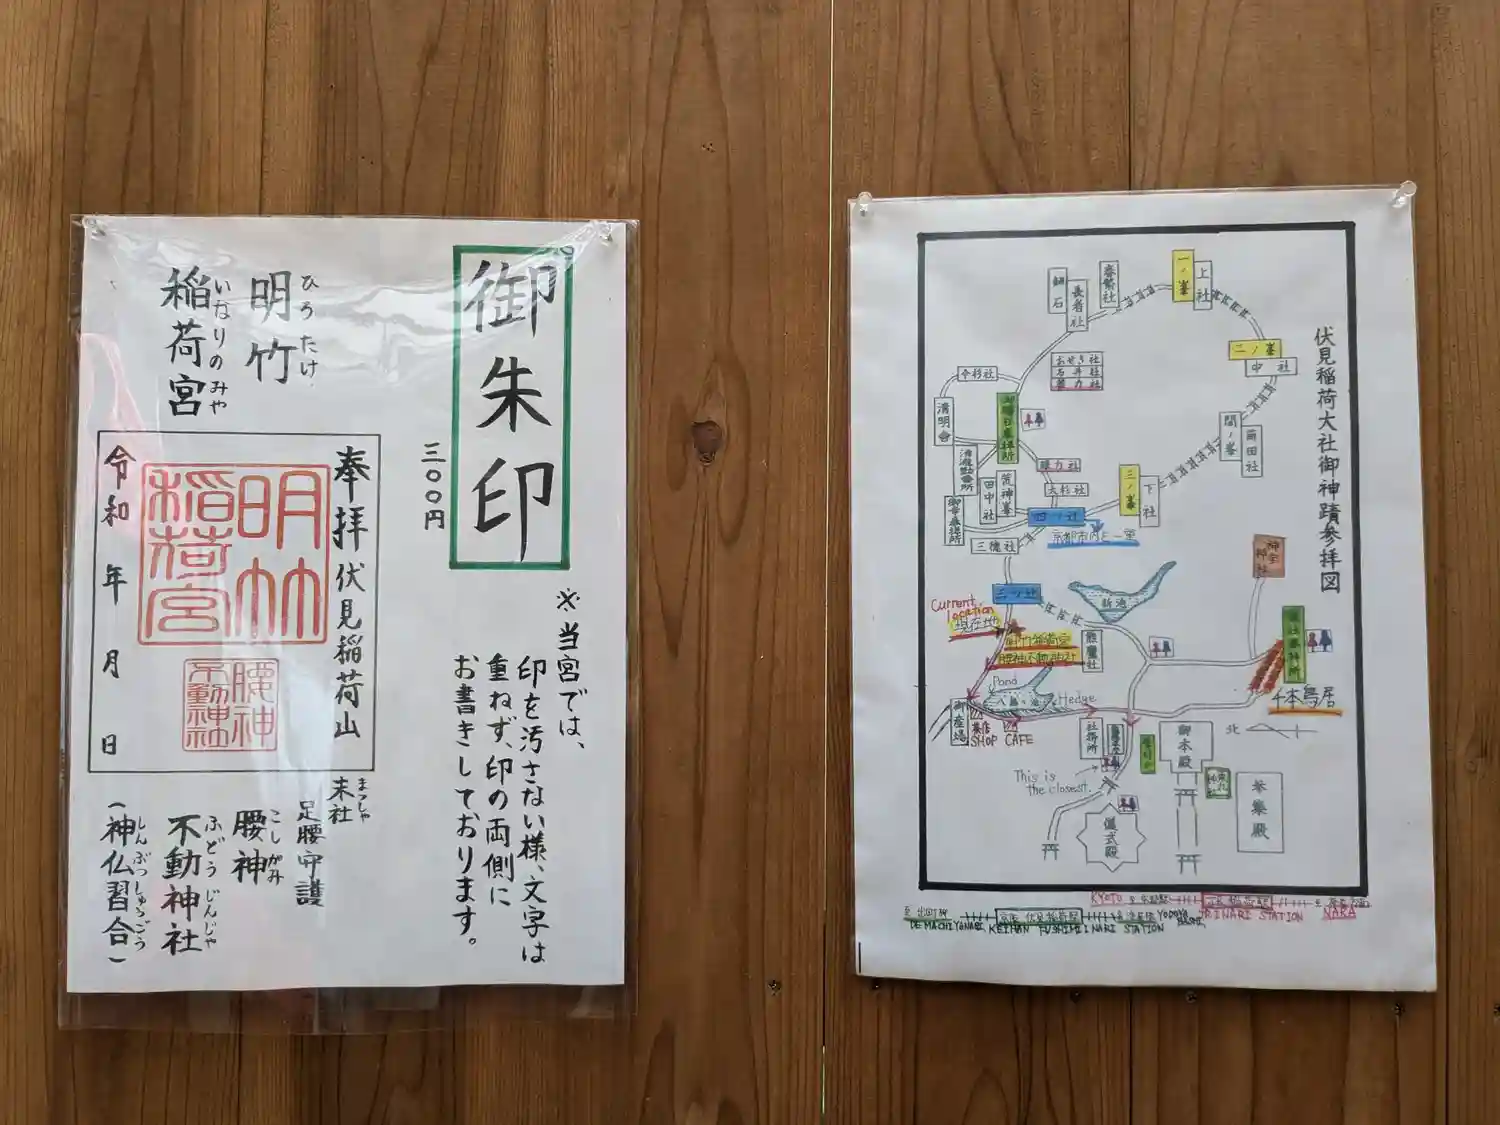 御朱印
三〇〇円
ひろたけ
明竹
いなりのみや
稲荷宮
奉拝 伏見稲荷山
明竹
稲荷宮
腰神
不動神社
令和 年 月 日
末社
まっしゃ
足腰守護
腰神
こしがみ
不動神社
ふどうじんじゃ
(神仏習合)
しんぶつしゅうごう
※当宮では、
印を汚さない様、文字は
重ねず、印の両側に
お書きしております。
伏見稲荷大社御神蹟参拝図
一ノ峯
上社
春繁社
長者社
釼石
二ノ峯
中社
おせき社
石井社
薬力社
傘杉社
清明舎
間ノ峯
荷田社
眼力社
大杉社
三ノ峯
下社
荒神峯
田中社
四ツ辻
京都市内を一望
三徳社
三ツ辻
新池
Current
location
現在地
明竹稲荷宮
腰神不動神社
熊鷹社
神宝神社
千本鳥居
Pond
八島ヶ池
Hedge
御産場
茶店
SHOP
CAFE
社務所
御本殿
北
This is
the closest.
参集殿
儀式殿
KYOTO
INARI STATION
NARA
DEMACHIYANAGI
京阪 伏見稲荷駅
KEIHAN FUSHIMI INARI STATION